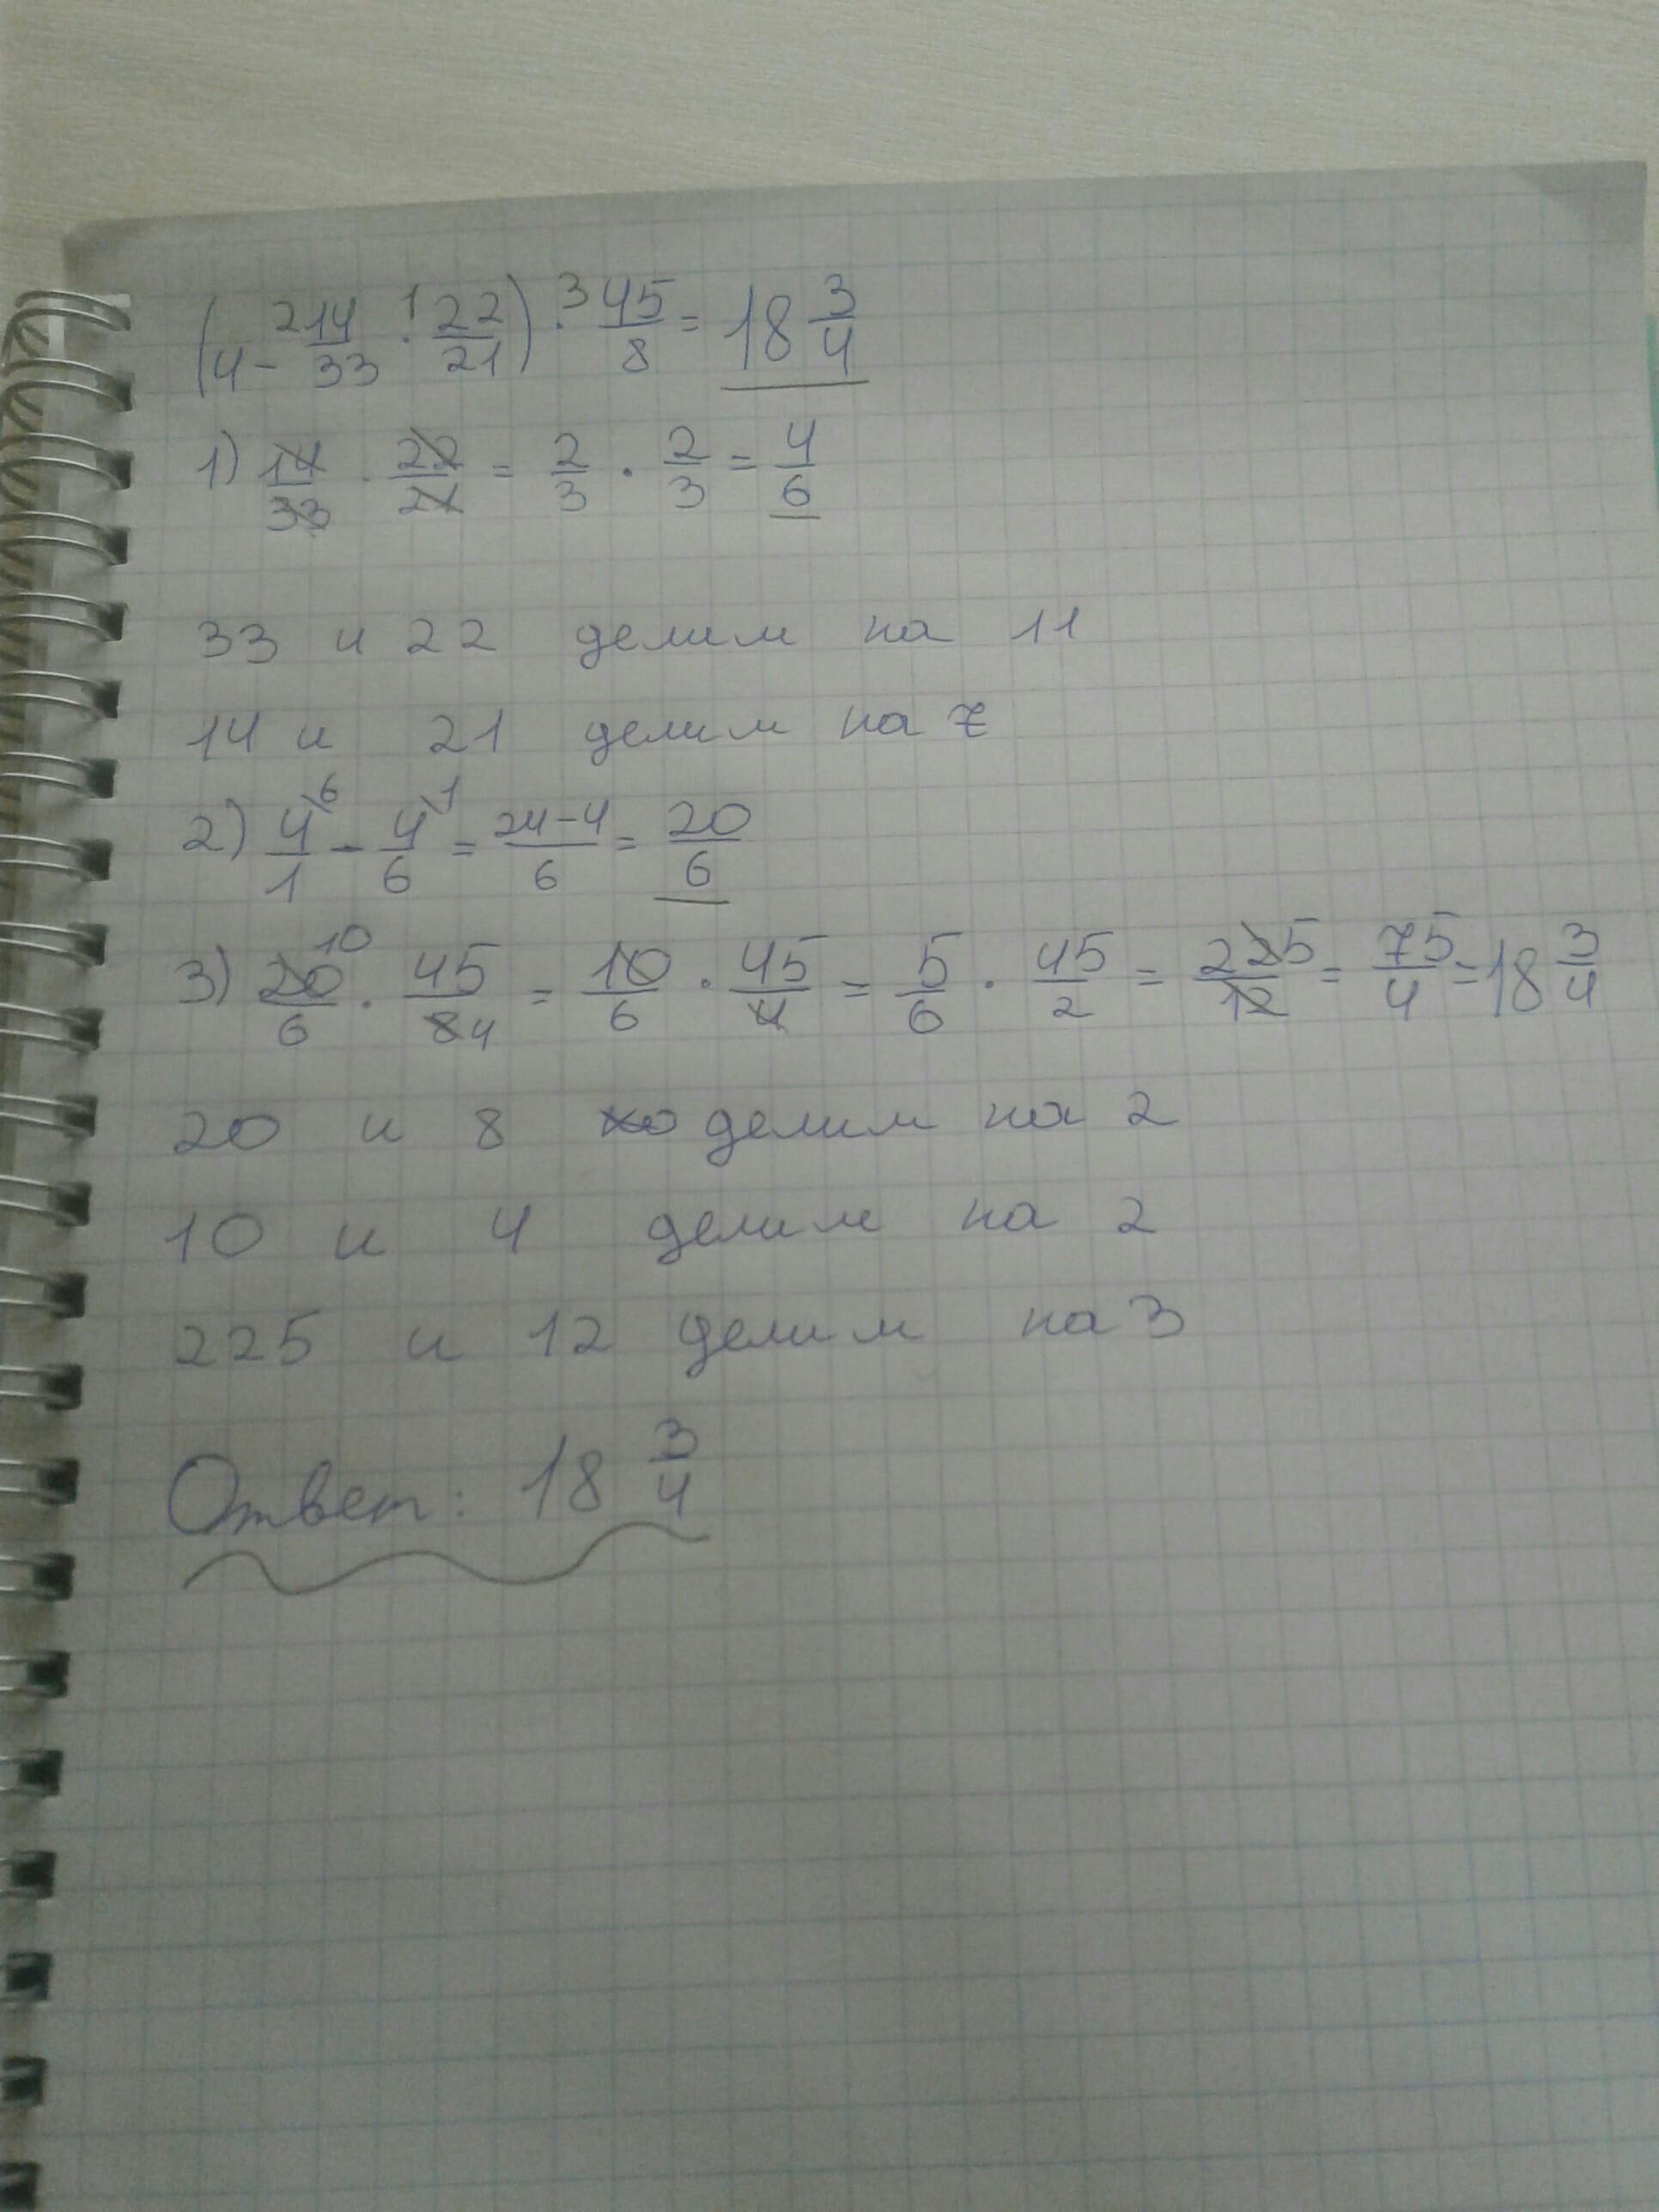 (4 - 14/33 · 22/21) · 45/8 = 18 3/4
2 1 3
1) 14/33 · 22/21 = 2/3 · 2/3 = 4/6
33 и 22 делим на 11
14 и 21 делим на 7
2) 4/1 ⁶ - 4/6 ¹ = 24-4/6 = 20/6
3) 20/6 ¹⁰ · 45/8 4 = 10/6 · 45/4 = 5/6 · 45/2 = 225/12 = 75/4 = 18 3/4
20 и 8 делим на 2
10 и 4 делим на 2
225 и 12 делим на 3
Ответ: 18 3/4